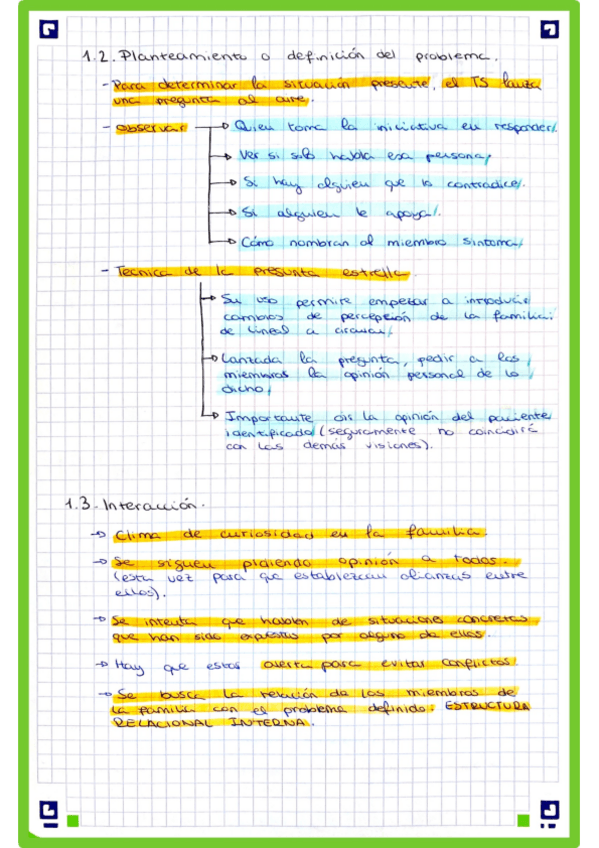 1.2. Planteamiento o definición del problema.
- Para determinar la situación presente, el TS lanza
una pregunta al aire.
- Observar → Quien toma la iniciativa en responder.
→ Ver si solo habla esa persona.
→ Si hay alguien que lo contradice.
→ Si alguien le apoya.
→ Cómo nombran al miembro síntoma.
- Tecnica de la pregunta estrella
→ Su uso permire empezar a introducir
cambios de percepción de la familia:
de lineal a circular.
→ Lanzada la pregunta, pedir a los
miembros la opinión personal de lo
dicho.
→ Importante oir la opinión del paciente
identificado (seguramente no coincidiré
con las demás visiones).
1.3. Interacción.
→ Clima de curiosidad en la familia.
→ Se siguen pidiendo opinión a todos.
(esta vez para que establezcan alianzas entre
ellos).
→ Se intenta que hablen de situaciones concretas
que han sido expuestas por alguno de ellos.
→ Hay que estar alerta para evitar conflictos.
→ Se busca la relación de los miembros de
la familia con el problema definido: ESTRUCTURA
RELACIONAL INTERNA.